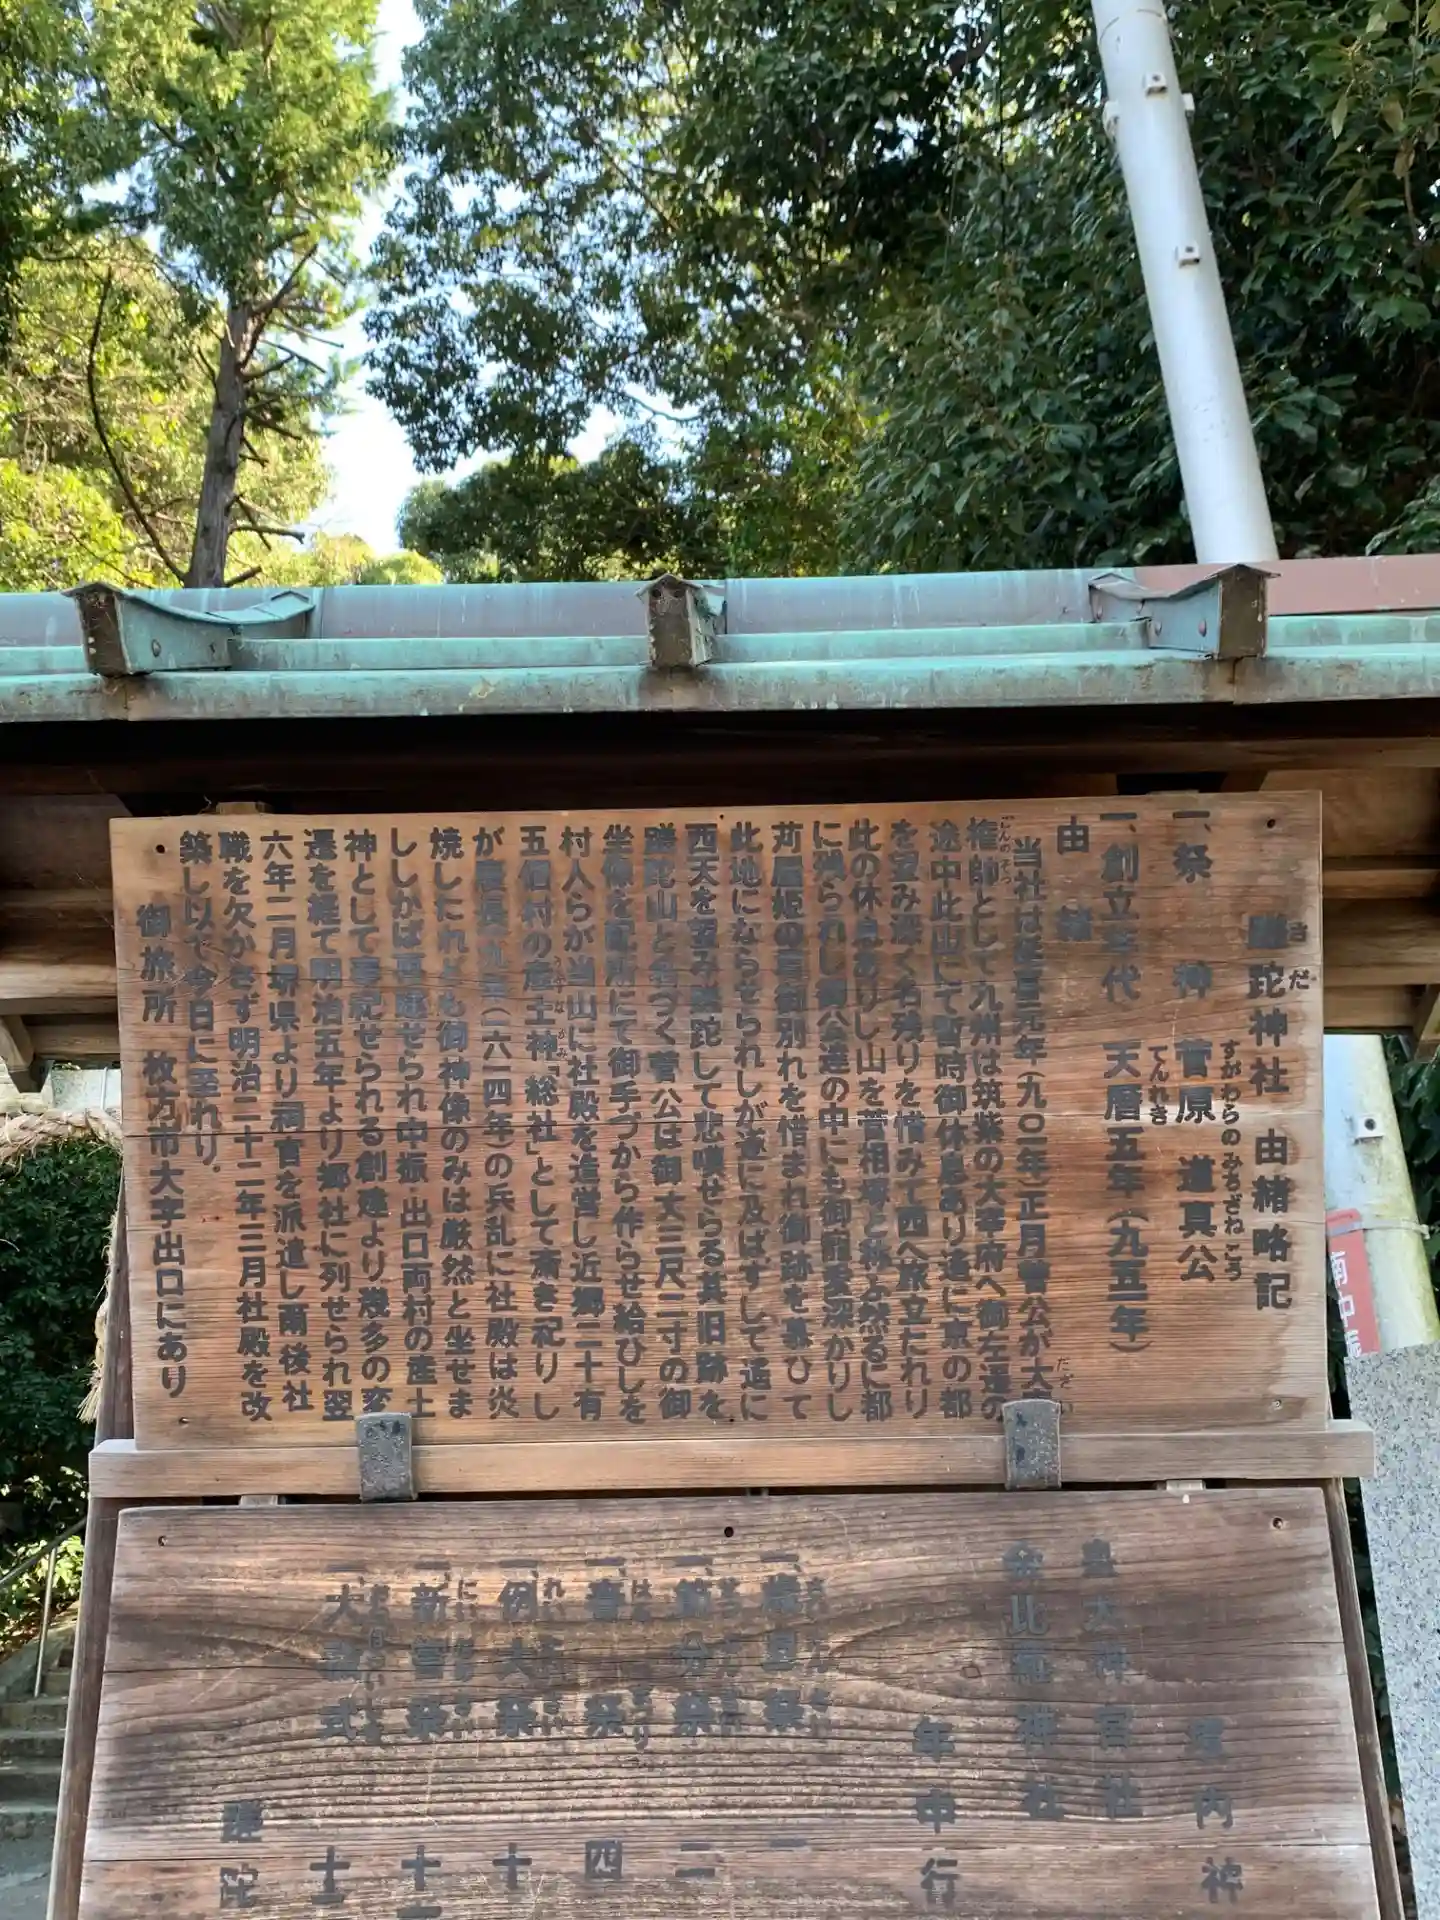 蹉跎神社 由緒略記
きだ
一、祭 神 菅原 道真公
すがわらのみちざねこう
一、創立年代 天暦五年(九五一年)
てんれき
由 緒
当社は延喜元年(九〇一年)正月菅公が大宰
だざい
権帥として九州は筑紫の大宰府へ御左遷の
ごんのそつ
途中此山にて暫時御休息あり遙に京の都
を望み深く名残りを惜みて西へ旅立たれり
此の休息ありし山を菅相塚と称ふ然るに都
に残られし御公達の中にも御寵愛深かりし
苅屋姫の君御別れを惜まれ御跡を慕ひて
此地にならせられしが遂に及ばずして遙に
西天を望み蹉跎して悲嘆せらる其旧跡を
蹉跎山と名づく菅公は御丈三尺二寸の御
坐像を配所にて御手づから作らせ給ひしを
村人らが当山に社殿を造営し近郷二十有
五個村の産土神「総社」として斎き祀りし
うぶすながみ
が慶長十九年(一六一四年)の兵乱に社殿は炎
焼したれども御神像のみは厳然と坐せま
ししかば再建せられ中振・出口両村の産土
神として奉祀せられる創建より幾多の変
遷を経て明治五年より郷社に列せられ翌
六年二月堺県より祠官を派遣し爾後社
職を欠かさず明治二十二年三月社殿を改
築し以て今日に至れり.
御旅所 枚方市大字出口にあり
境内神
皇大神宮社
金比羅神社
年中行
一、歳旦祭 一
さいたんさい
一、節分祭 二
一、春祭 四
はるまつり
一、例大祭 十
れいたいさい
一、新嘗祭 十一
にいなめさい
一、大祓式 十二
おおはらいしき
蹉跎
南中振